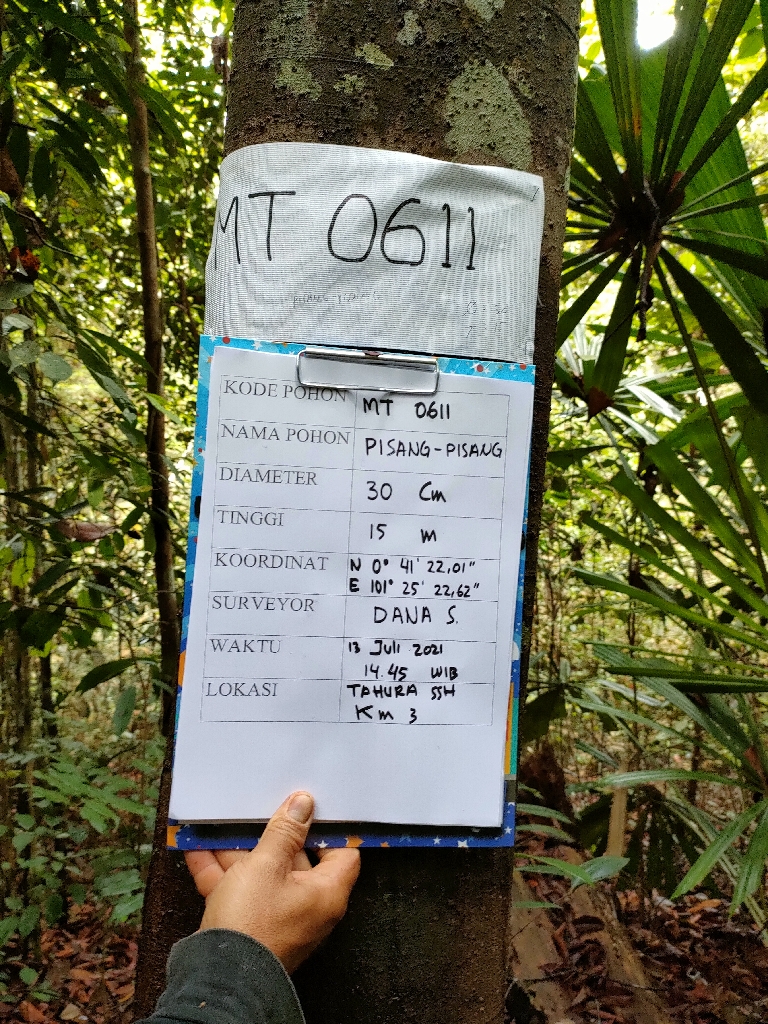 MT 0611
KODE POHON MT 0611
NAMA POHON PISANG-PISANG
DIAMETER 30 Cm
TINGGI 15 m
KOORDINAT N 0° 41' 22,01"
E 101° 25' 22,62"
SURVEYOR DANA S.
WAKTU 13 Juli 2021
14.45 WIB
LOKASI TAHURA SSH
Km 3